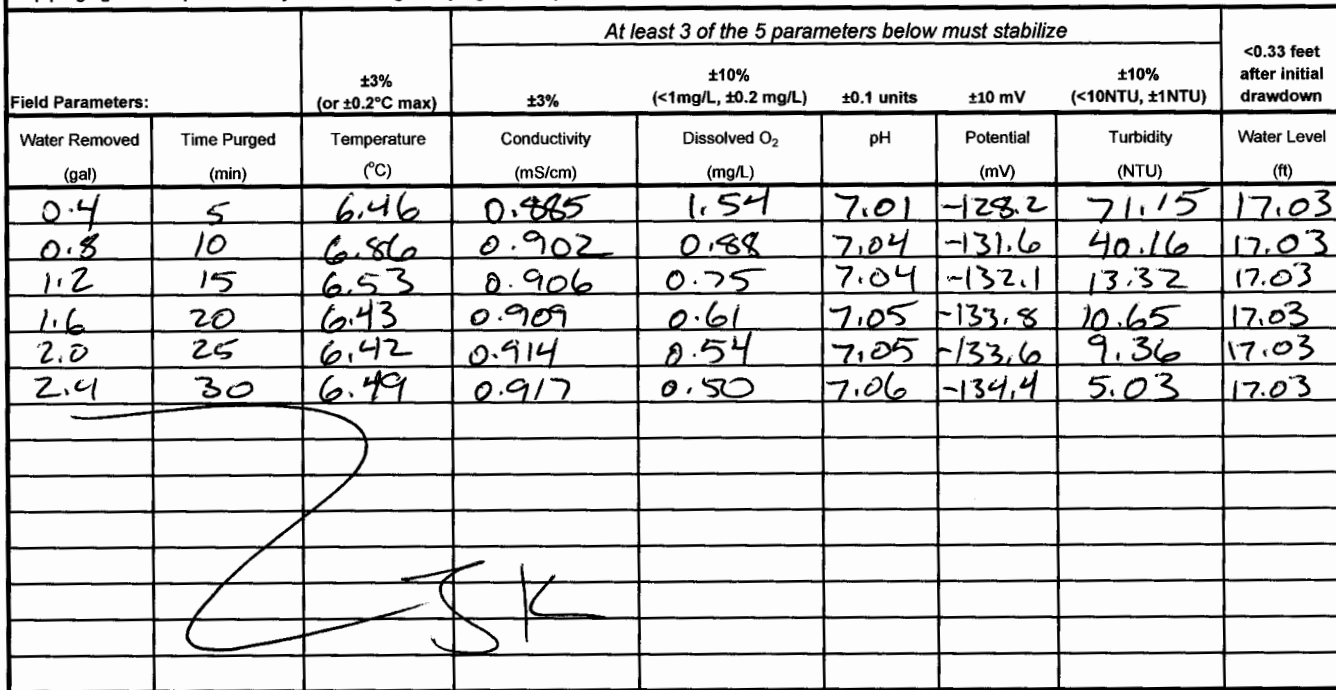 At least 3 of the 5 parameters below must stabilize
Field Parameters: ±3% (or ±0.2°C max) ±3% ±10% (<1mg/L, ±0.2 mg/L) ±0.1 units ±10 mV ±10% (<10NTU, ±1NTU) <0.33 feet after initial drawdown
Water Removed Time Purged Temperature Conductivity Dissolved O₂ pH Potential Turbidity Water Level
(gal) (min) (°C) (mS/cm) (mg/L) (mV) (NTU) (ft)
0.4 5 6.46 0.885 1.54 7.01 -128.2 71.15 17.03
0.8 10 6.86 0.902 0.88 7.04 -131.6 40.16 17.03
1.2 15 6.53 0.906 0.75 7.04 -132.1 13.32 17.03
1.6 20 6.43 0.909 0.61 7.05 -133.8 10.65 17.03
2.0 25 6.42 0.914 0.54 7.05 -133.6 9.36 17.03
2.4 30 6.49 0.917 0.50 7.06 -134.4 5.03 17.03
JK